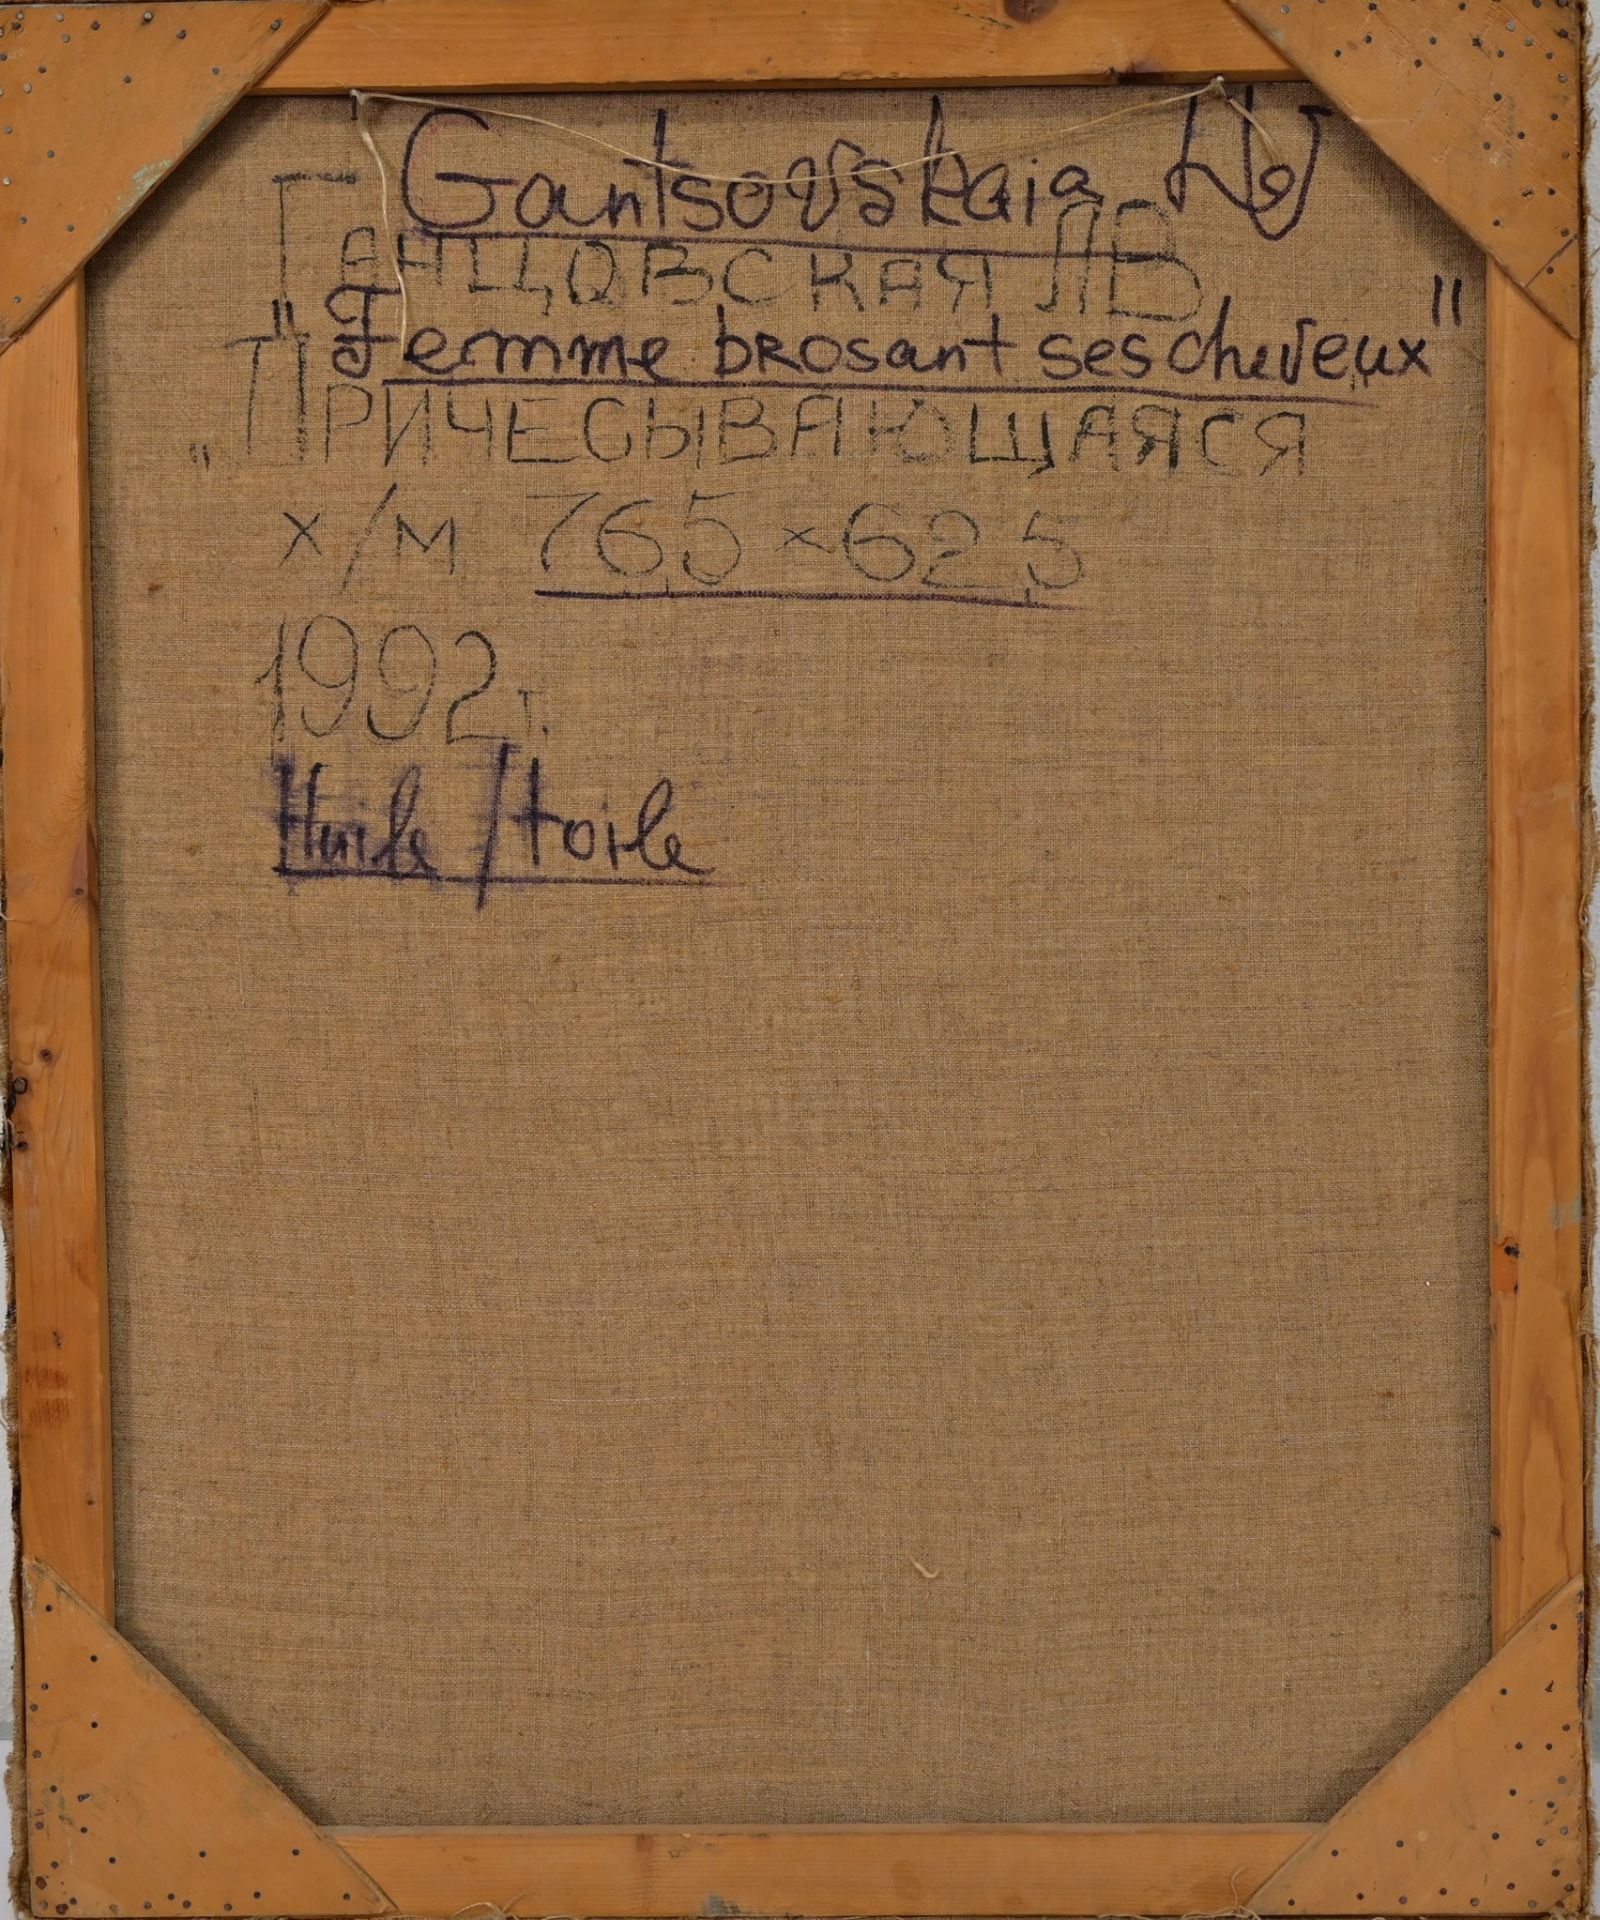 Gantsovskaia
ГАНЦОВСКАЯ ЛВ
"Femme brosant ses cheveux"
„ПРИЧЕСЫВАЮЩАЯСЯ
х/м 76,5 × 62,5
1992 г.
Huile / toile